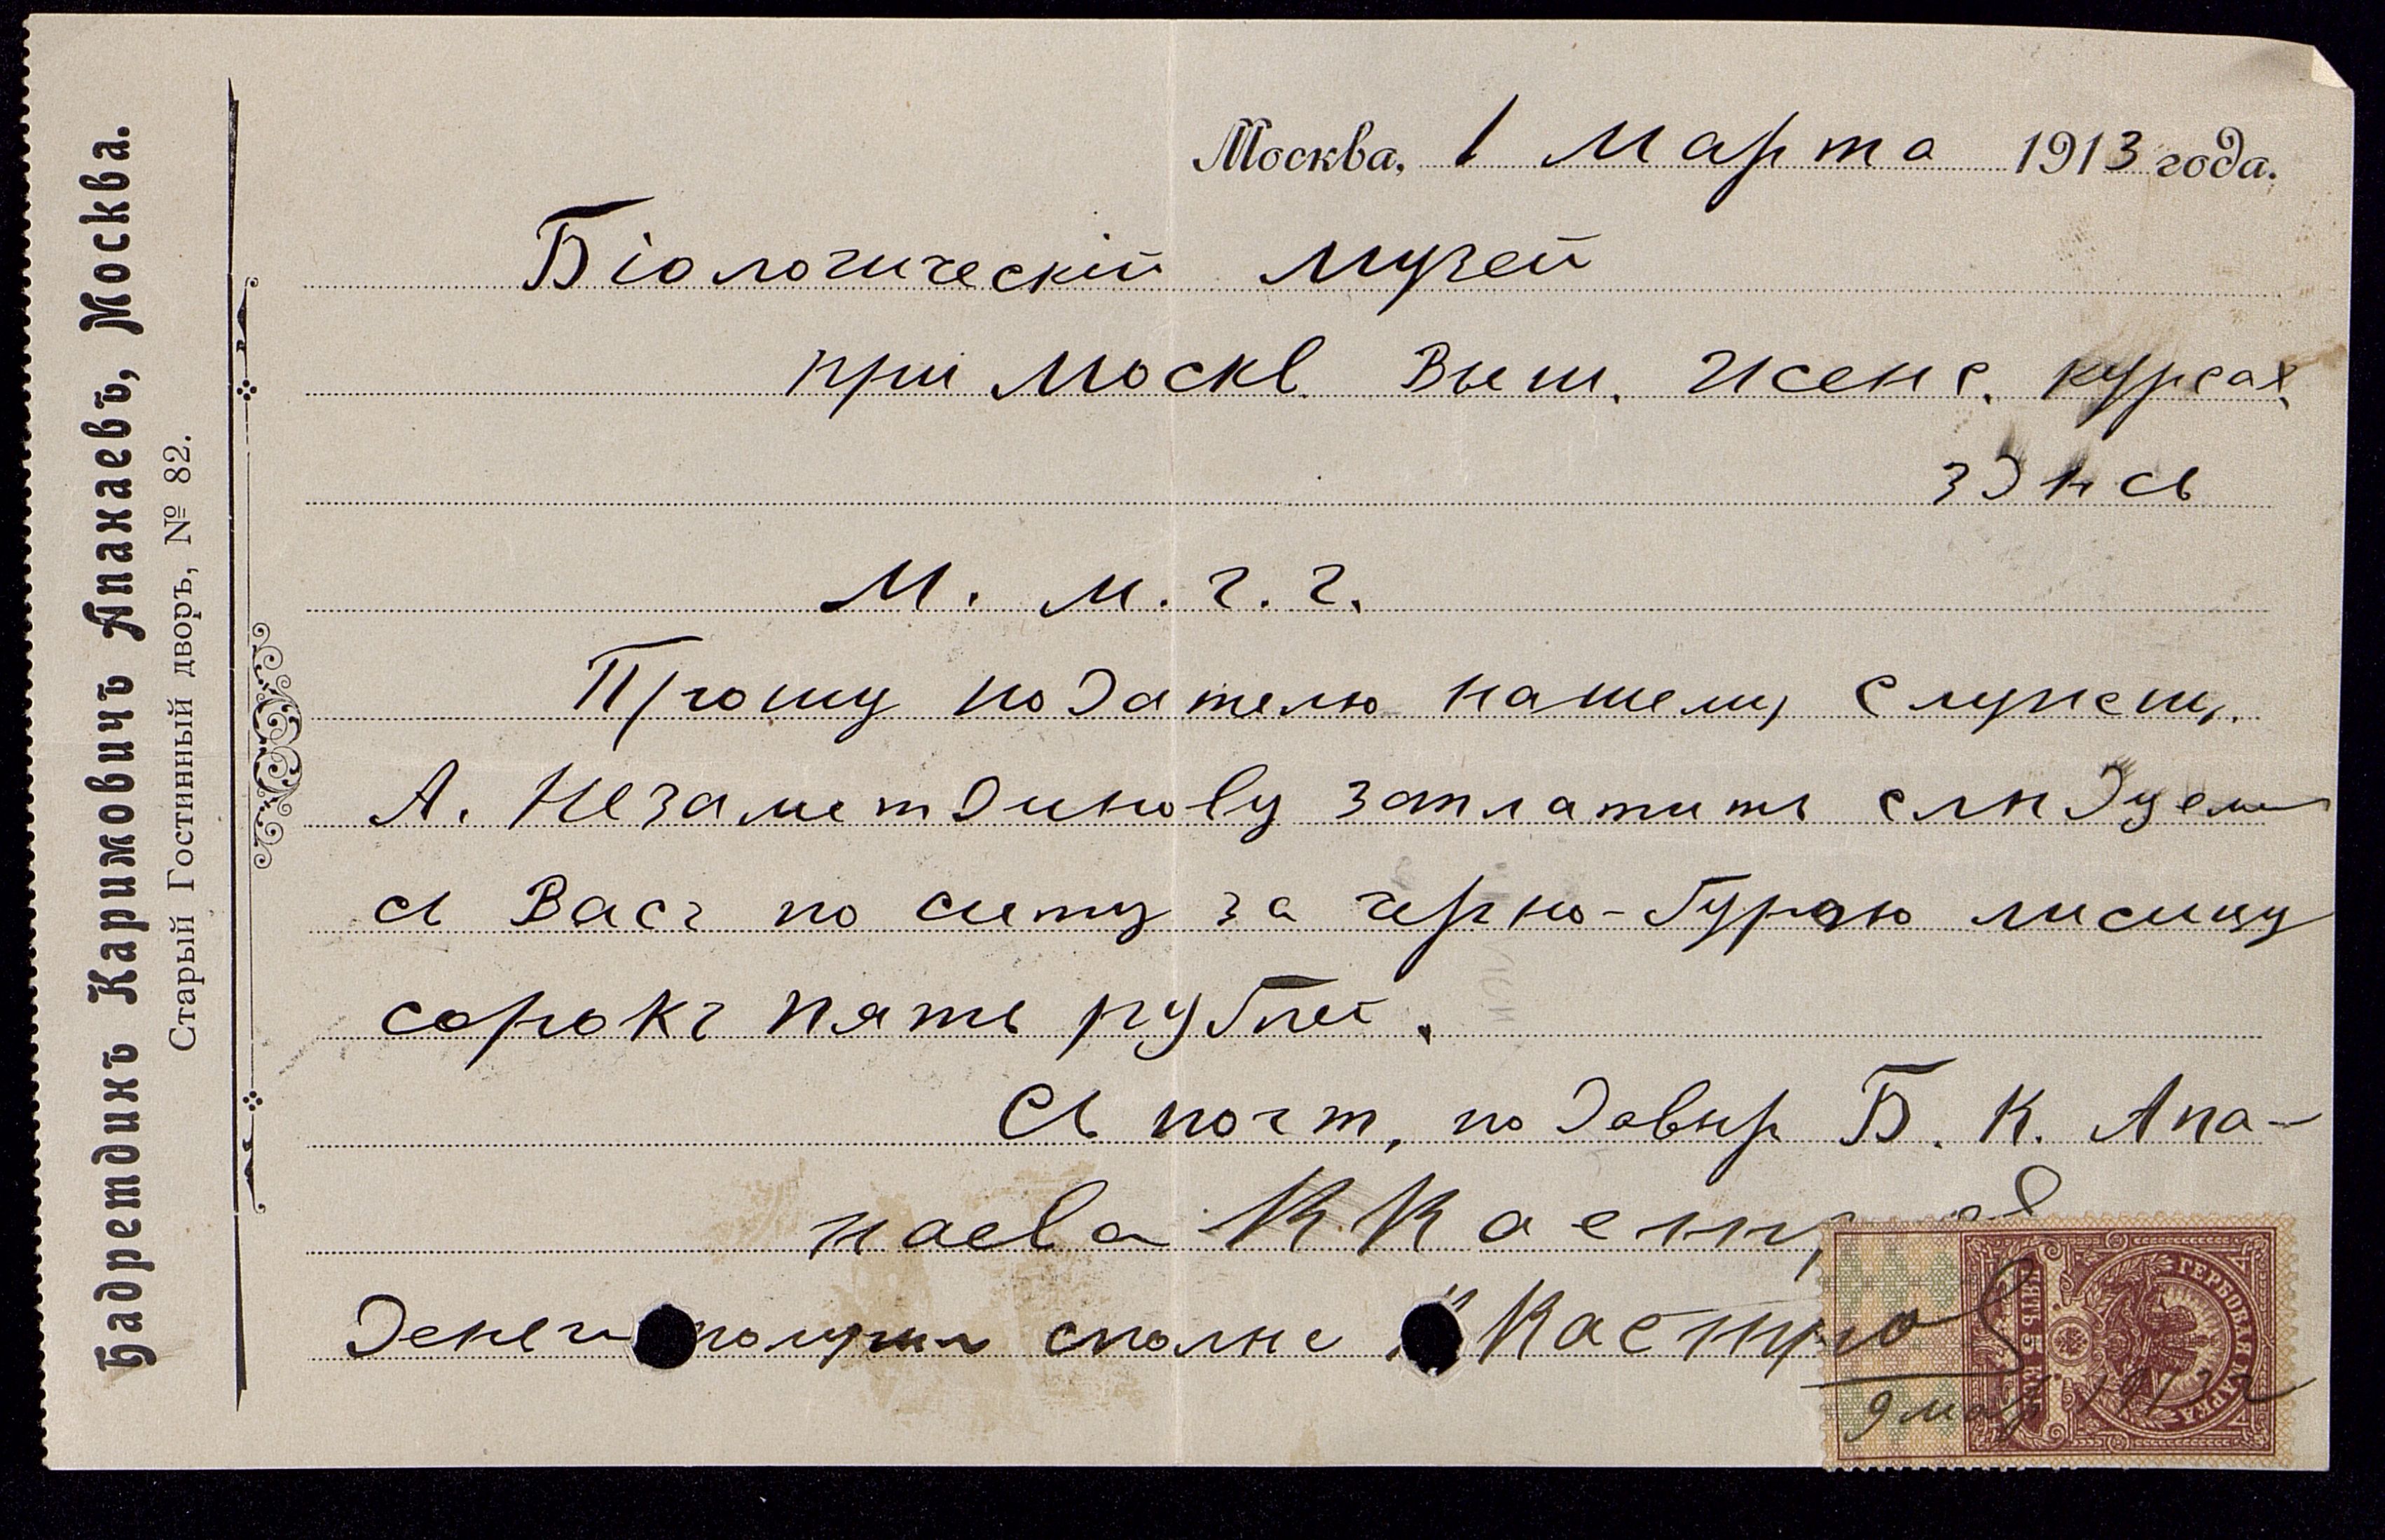 Бадретдинъ Каримовичъ Апанаевъ, Москва.
Старый Гостинный дворъ, № 82.
Москва, 1 Марта 1913 года.
Біологическій Музей
при Москв. Выш. Женс. курсах
здѣсь
М. м. г. г.
Прошу подателю нашему служещ.
А. Незаметдинову заплатить слѣдуем
съ Васъ по счету за черно-бурую лисицу
сорокъ пять рублей.
Съ почт, по довѣр Б. К. Апа-
наева К. К
Денги получил сполне
ГЕРБОВАЯ МАРКА
ПЯТЬ КОП
9 мар